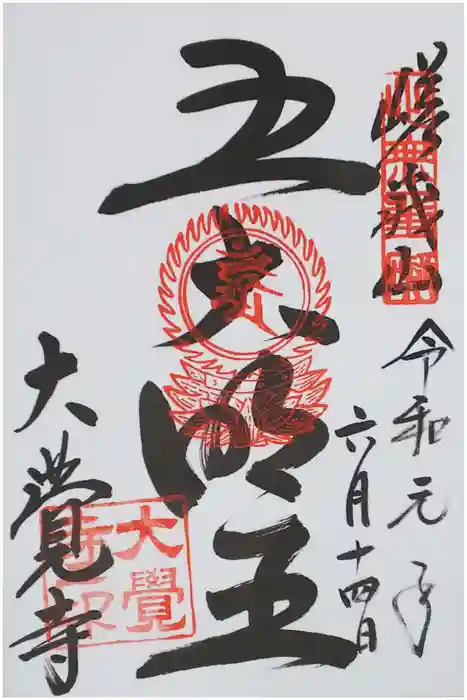 嵯峨山
令和元年
六月十四日
五大明王
大覺寺
大覺
寺印